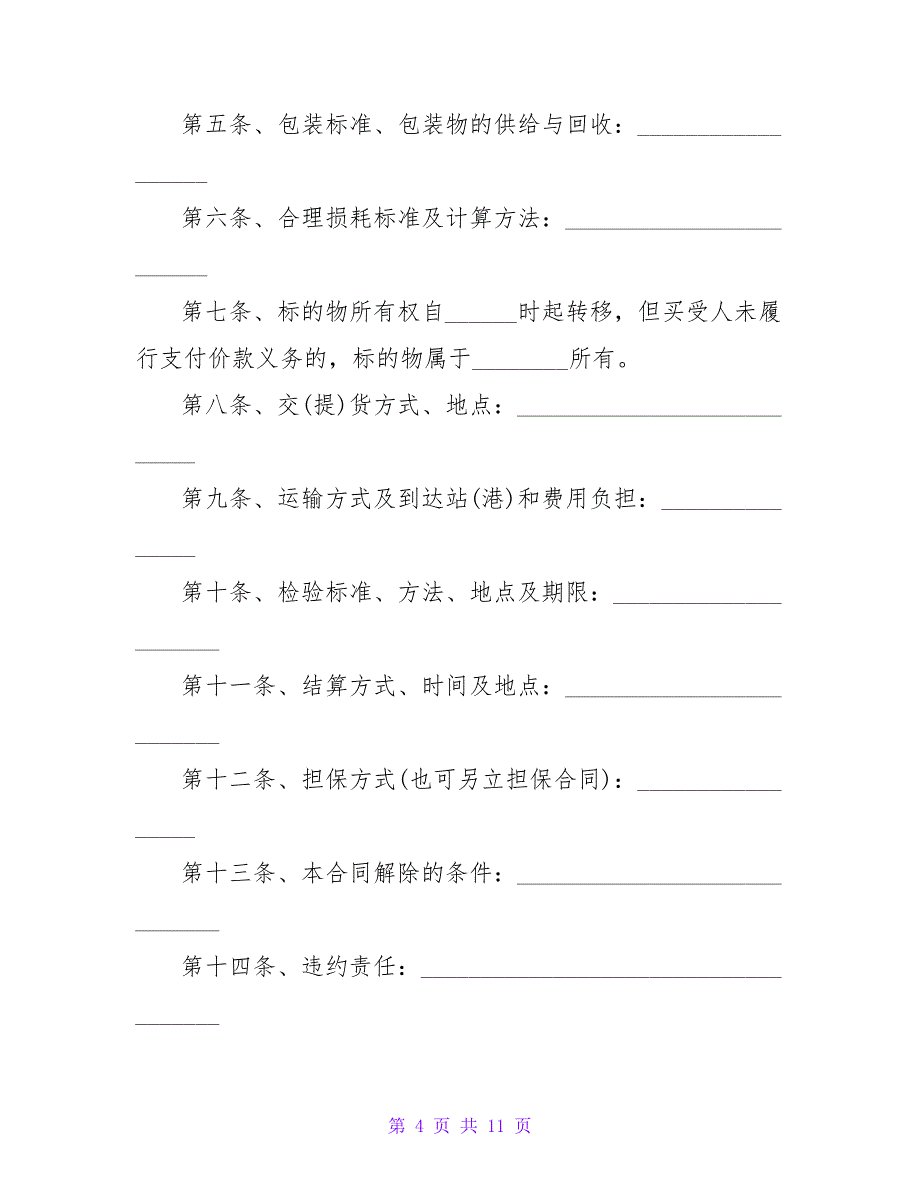 第五条、包装标准、包装物的供给与回收：____________
______
第六条、合理损耗标准及计算方法：__________________
______
第七条、标的物所有权自______时起转移，但买受人未履
行支付价款义务的，标的物属于________所有。
第八条、交(提)货方式、地点：______________________
_____
第九条、运输方式及到达站(港)和费用负担：__________
_____
第十条、检验标准、方法、地点及期限：______________
_______
第十一条、结算方式、时间及地点：__________________
_______
第十二条、担保方式(也可另立担保合同)：____________
_____
第十三条、本合同解除的条件：______________________
_______
第十四条、违约责任：______________________________
_______
第 4 页 共 11 页